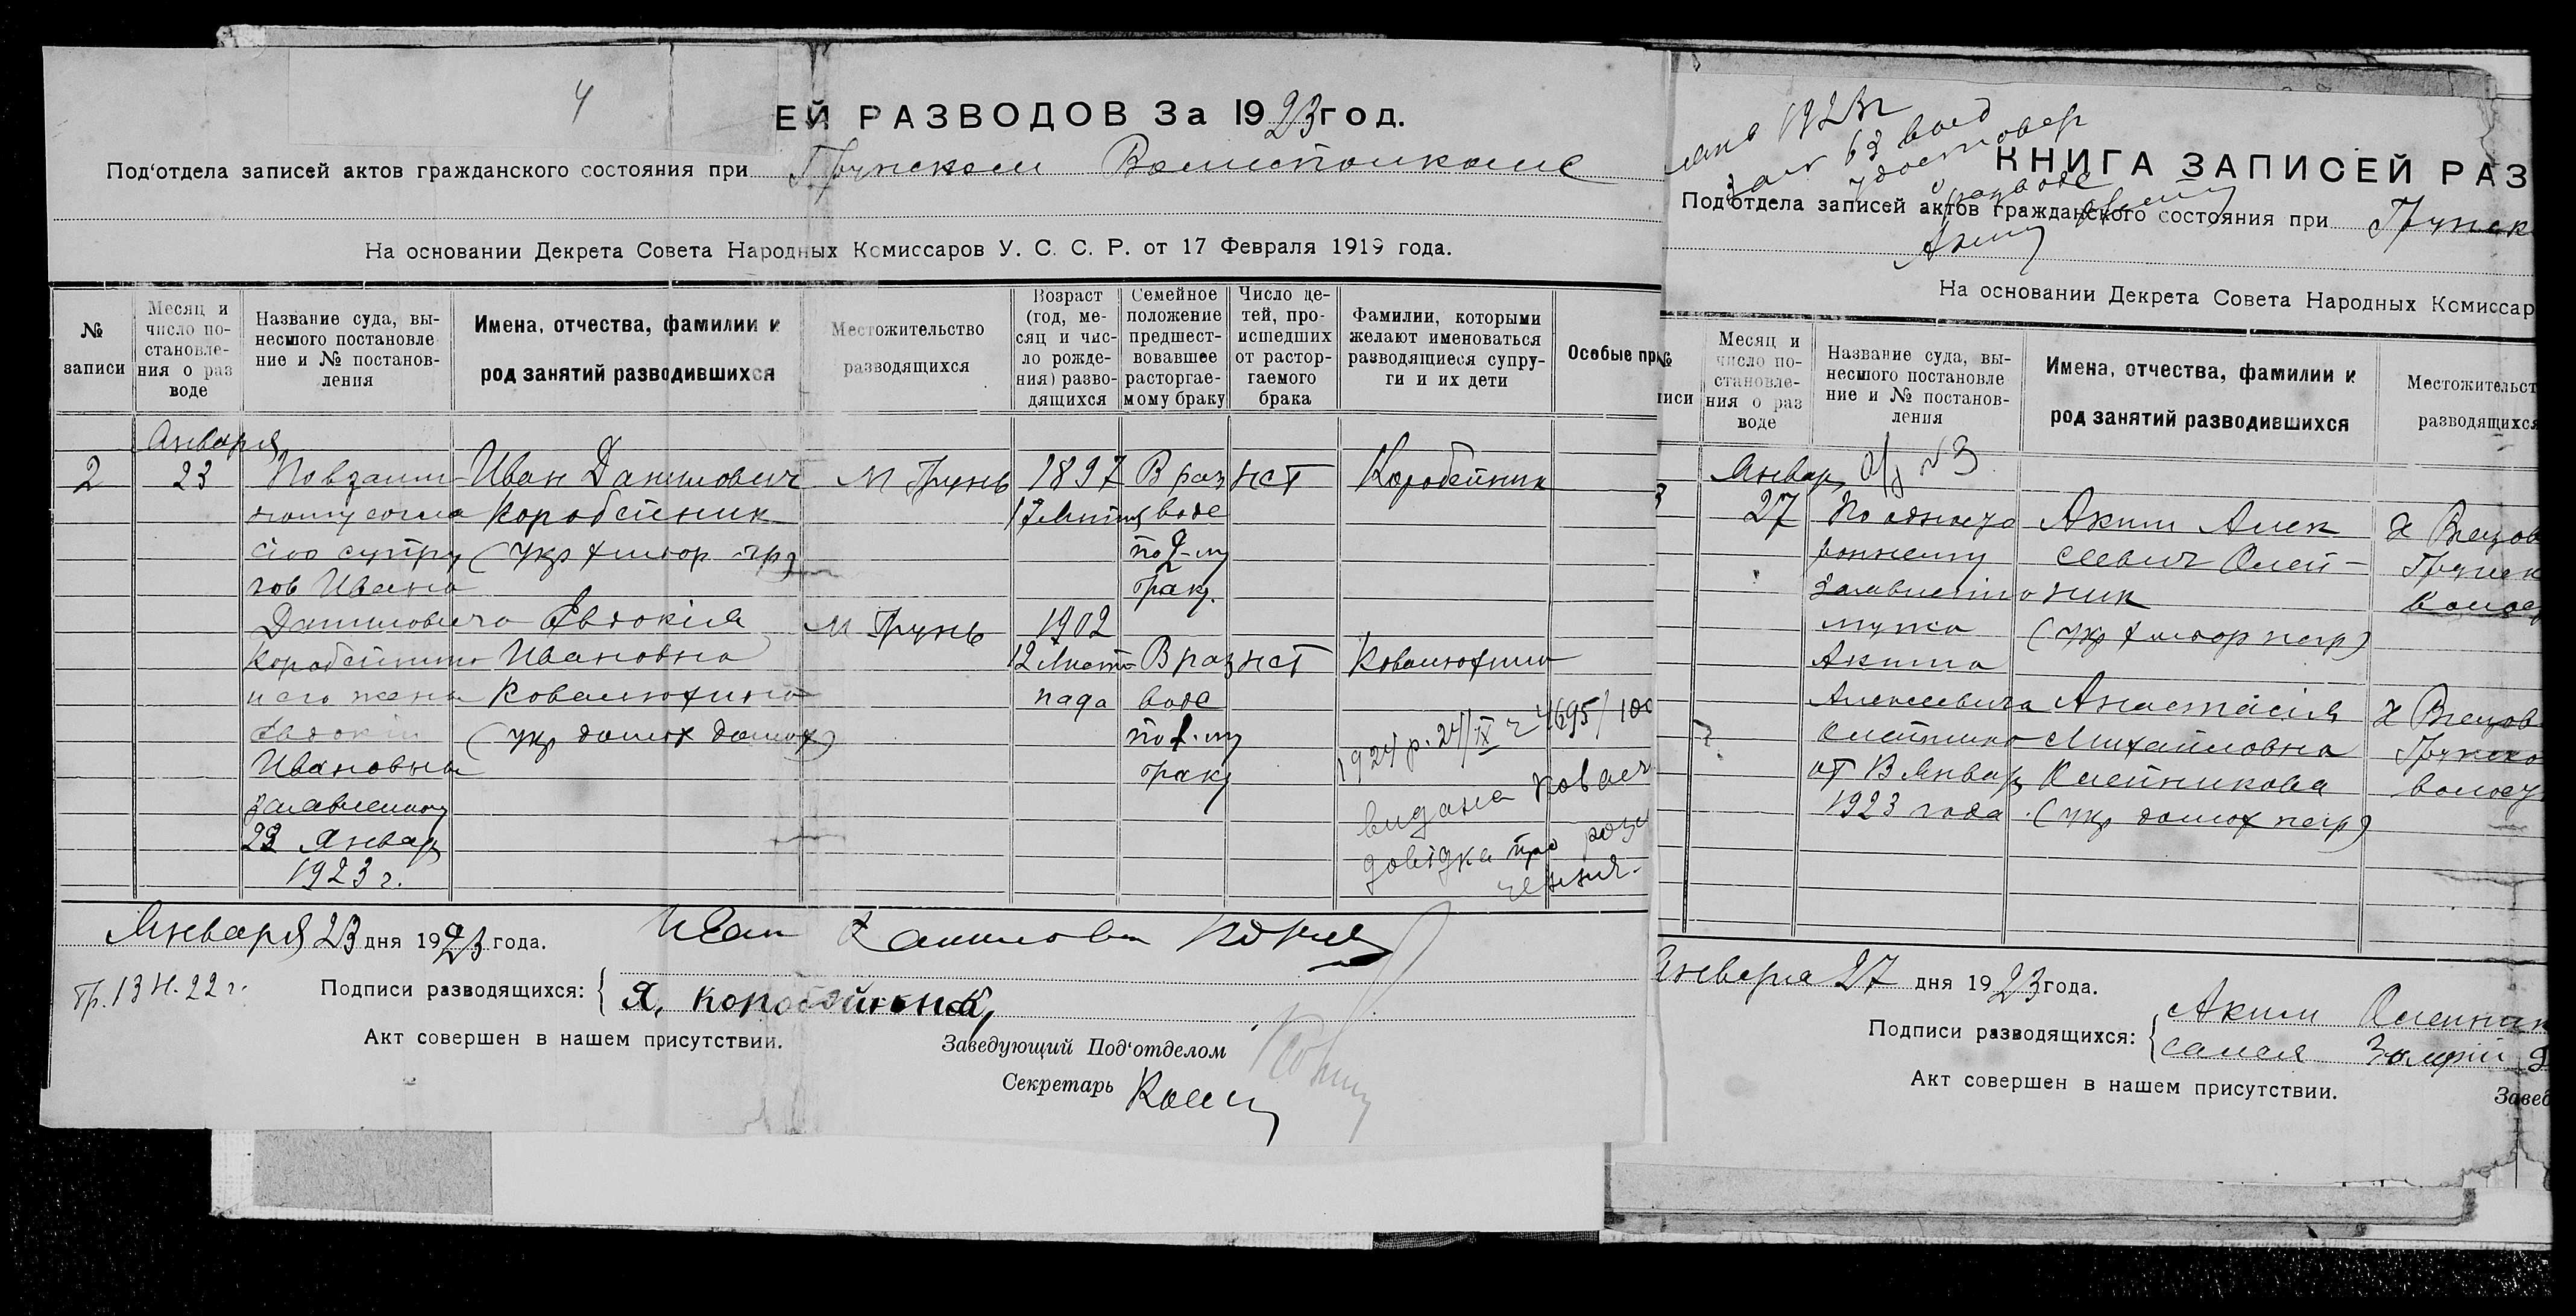 4
ЕЙ РАЗВОДОВ За 1923 год.
Под'отдела записей актов гражданского состояния при Грунском
На основании Декрета Совета Народных Комиссаров У. С. С. Р. от 17 Февраля 1919 года.
№ записи
Месяц и число постановле-ния о раз воде
Название суда, вы-
несшого постановле
ние и № постанов-
ления
Имена, отчества, фамилии и
род занятий разводившихся
Местожительство
разводящихся
Возраст
(год, ме-
сяц и чис-
ло рожде-
ния) разво-
дящихся
Семейное
положение
предшест-
вовавшее
расторгае-
мому браку
Число де-
тей, про-
исшедших
от растор-
гаемого
брака
Фамилии, которыми
желают именоваться
разводящиеся супру-
ги и их дети
Особые пр
Января
2
23
По взаим
ному согла
сию супру
гов Ивана
Даниловича
Коробейника
и его жены
Евдокии
Ивановна
заявлению
23 Январ
1923 г.
Иван Данилович
Коробейник
(укр хлебор гр)
Евдокія
Ивановна
Ковалюхина
(укр домох домох)
М Грунь
М Грунь
1897
1902
12 Листо
пада
В раз
воде
по 2-му
браку.
В раз
воде
по 1-му
браку
нет
нет
Коробейник
Ковалюхина
1924 р. 24/IX ч 4695/100
видана Ковал
довідка про розл
чення.
Января 23 дня 1923 года.
Иван
Подписи разводящихся:
Я,
Акт совершен в нашем присутствии.
Заведующий Под'отделом
Секретарь
1923 г
КНИГА ЗАПИСЕЙ РАЗ
Под'отдела записей актов гражданского состояния при Грунск
Аким
На основании Декрета Совета Народных Комиссар
№
иси
Месяц и
число по-
становле-
ния о раз
воде
Название суда, вы-
несшого постановле
ние и № постанов-
ления
Имена, отчества, фамилии и
род занятий разводившихся
Местожительст
разводящихся
3
Январ
27
№3
По одност
роннему
заявлению
мужа
Акима
Алексеевича
Олейника
от В Январ
1923 года
Аким Алек
сеевич Олей-
ник
(укр хлебор негр)
Анастасія
Михайловна
Олейникова
(укр домох негр)
Грунск
волос
Грунско
волос
Января 27 дня 1923 года.
Подписи разводящихся:
Аким Олейник
Акт совершен в нашем присутствии.
Завед